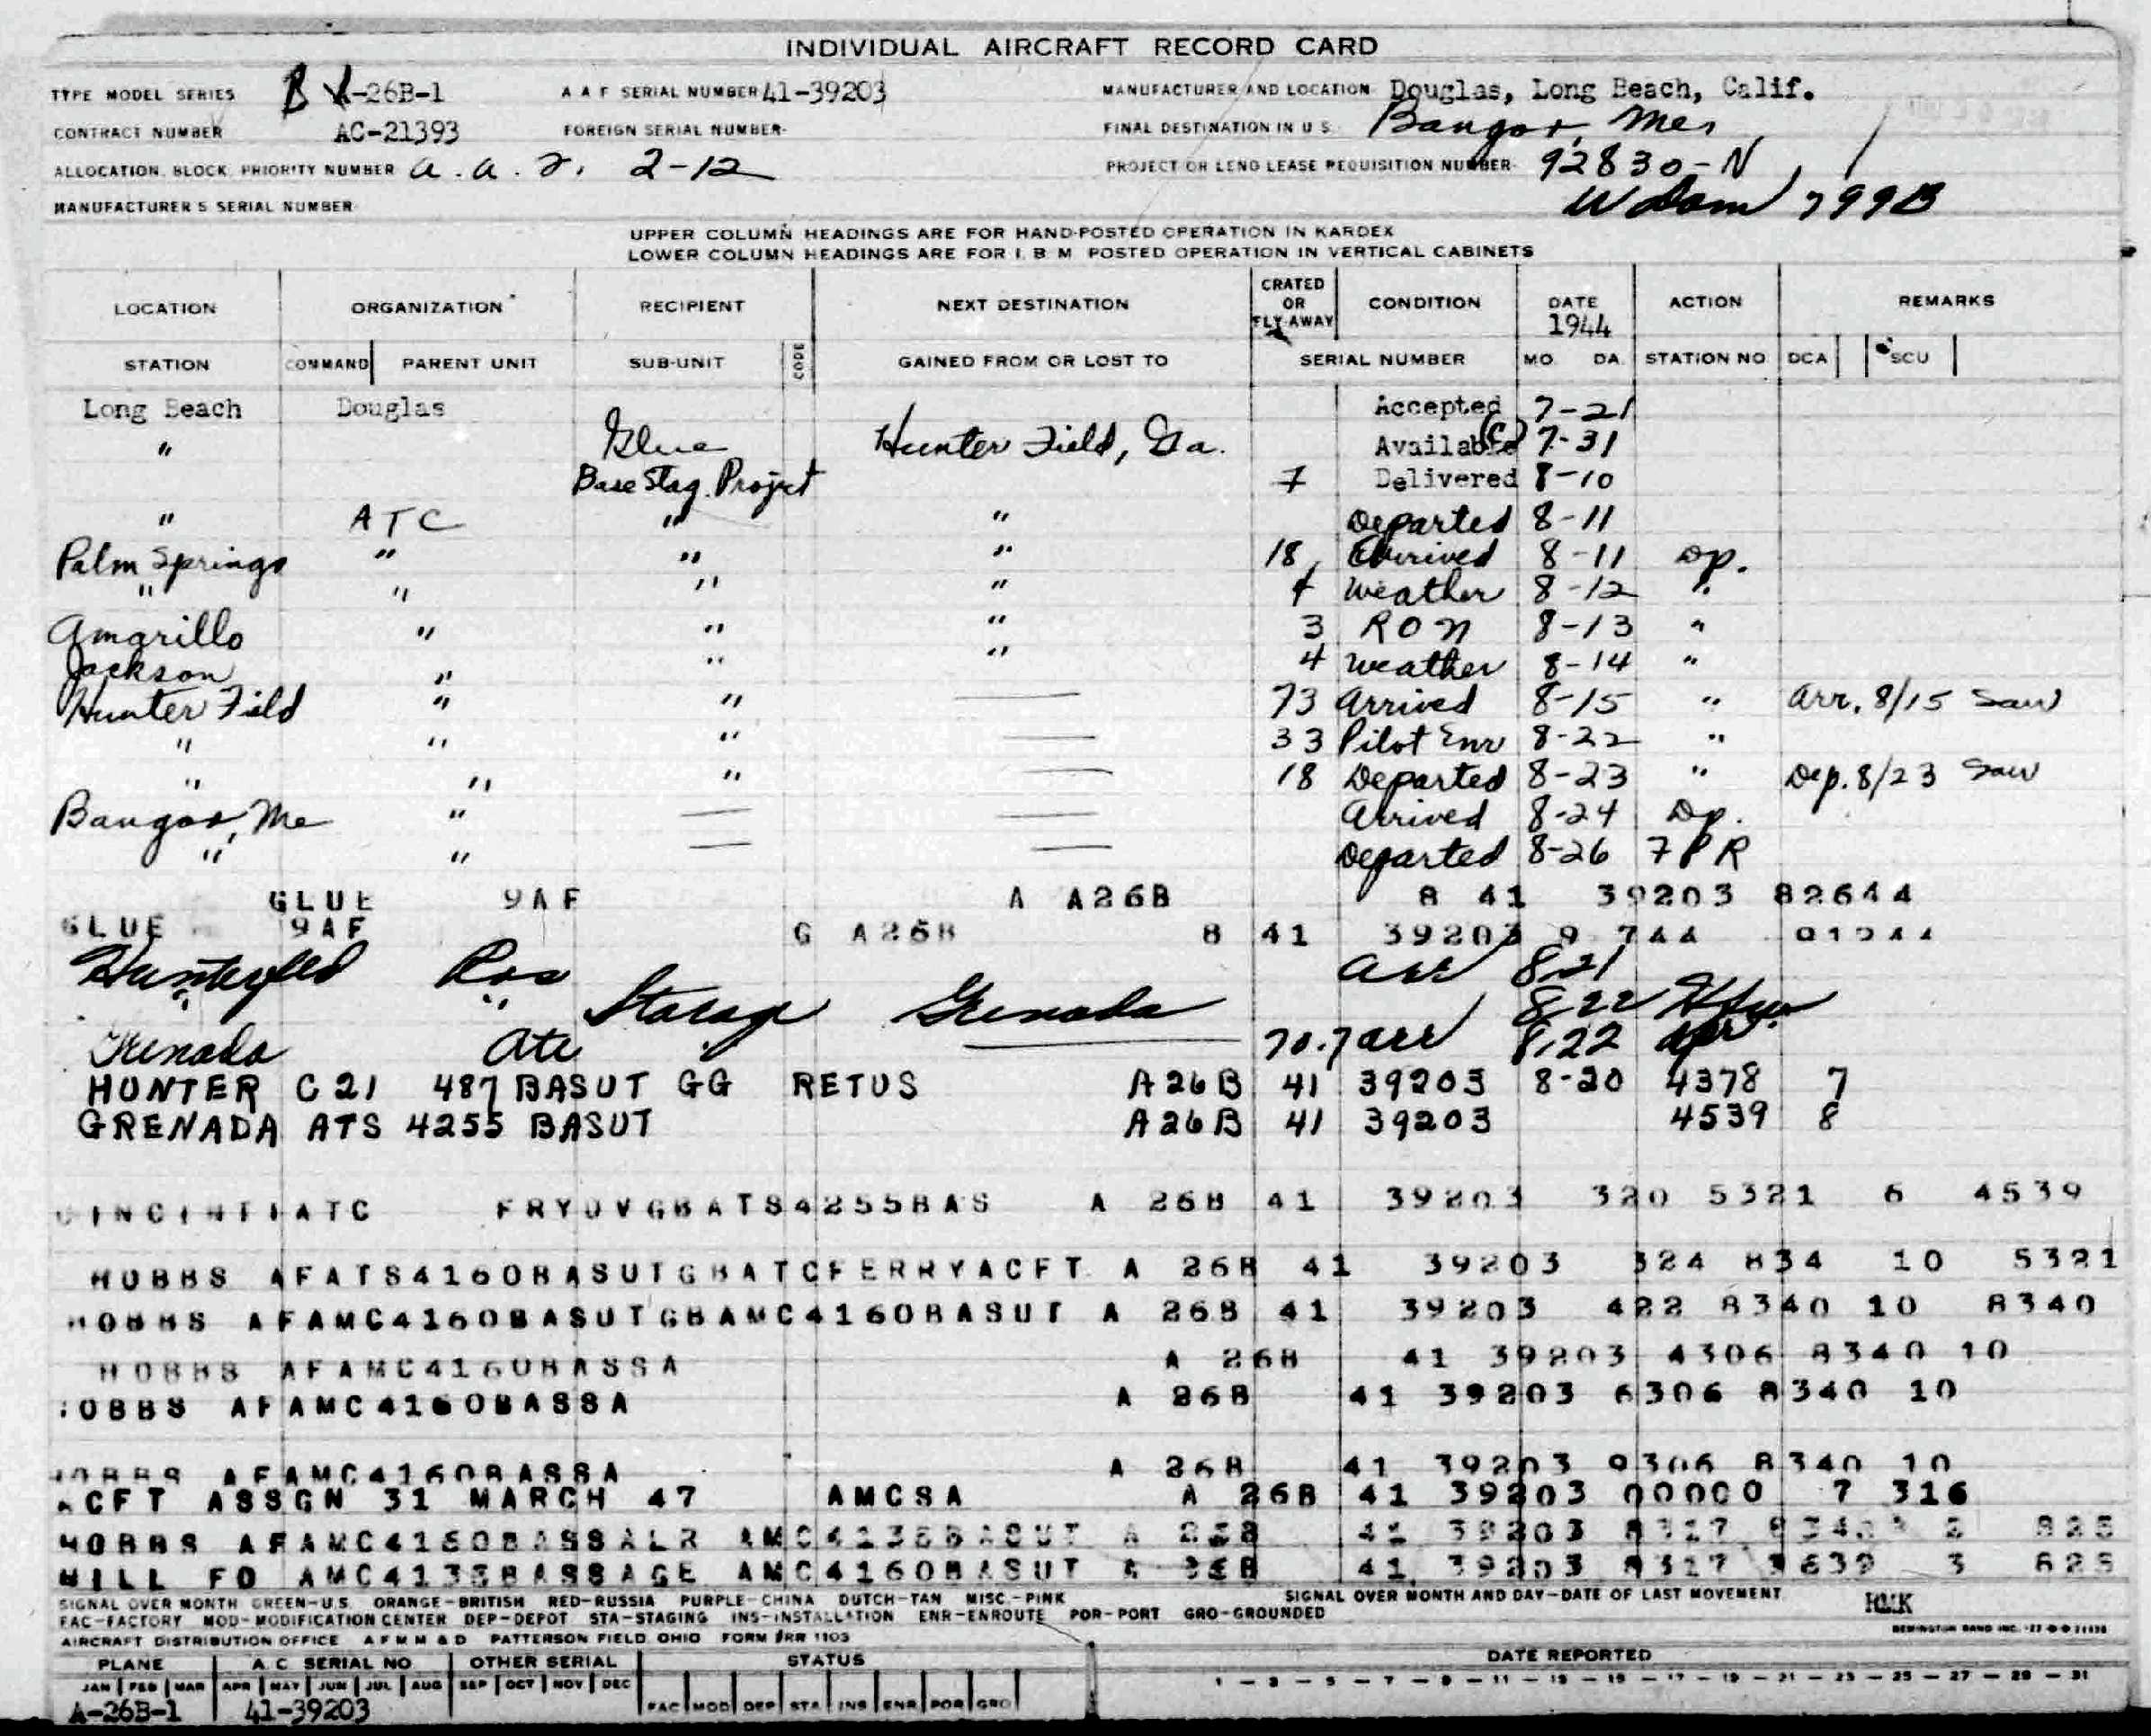 INDIVIDUAL AIRCRAFT RECORD CARD
TYPE MODEL SERIES B A-26B-1 A A F SERIAL NUMBER 41-39203 MANUFACTURER AND LOCATION Douglas, Long Beach, Calif.
CONTRACT NUMBER AC-21393 FOREIGN SERIAL NUMBER FINAL DESTINATION IN U S Bangor, Me
ALLOCATION BLOCK PRIORITY NUMBER 2-12 PROJECT OR LEND LEASE REQUISITION NUMBER 92830-N
MANUFACTURER S SERIAL NUMBER 799B
UPPER COLUMN HEADINGS ARE FOR HAND-POSTED OPERATION IN KARDEX
LOWER COLUMN HEADINGS ARE FOR I B M POSTED OPERATION IN VERTICAL CABINETS
LOCATION ORGANIZATION RECIPIENT NEXT DESTINATION CRATED OR FLY-AWAY CONDITION DATE 1944 ACTION REMARKS
STATION COMMAND PARENT UNIT SUB-UNIT CODE GAINED FROM OR LOST TO SERIAL NUMBER MO. DA. STATION NO DCA SCU
Long Beach Douglas Accepted 7-21
" Glue Hunter Field, Ga. Available (C) 7-31
Base Stag. Project 7 Delivered 8-10
" ATC " " Departed 8-11
Palm Springs " " " 18 Arrived 8-11 Dp.
" " " " 4 Weather 8-12 "
Amarillo " " " 3 RON 8-13 "
Jackson " " " 4 Weather 8-14 "
Hunter Field " " — 73 Arrived 8-15 " Arr. 8/15 Saw
" " " — 33 Pilot Enr 8-22 "
" " " — 18 Departed 8-23 " Dep. 8/23 Saw
Bangor, Me " — — Arrived 8-24 Dp.
" " — — Departed 8-26 7PR
GLUE 9AF A A26B 8 41 39203 82644
GLUE 9AF G A26B 8 41 39203 9 744
Hunterfield arr 8-21
" " Storage Grenada 8-22
Grenada Atc — 70.7 arr 8-22
HUNTER C21 487 BASUT GG RETUS A26B 41 39203 8-20 4378 7
GRENADA ATS 4255 BASUT A26B 41 39203 4539 8
CINCINTIATC FRYDVGBATS4255BAS A 26B 41 39203 320 5321 6 4539
HOBBS AFATS4160BASUTGBATCFERRYACFT A 26B 41 39203 324 834 10 5321
HOBBS AFAMC4160BASUTGBAMC4160BASUT A 26B 41 39203 422 8340 10 8340
HOBBS AFAMC4160BASSA A 26B 41 39203 4306 8340 10
HOBBS AFAMC4160BASSA A 26B 41 39203 6306 8340 10
HOBBS AFAMC4160BASSA A 26B 41 39203 9306 8340 10
ACFT ASSGN 31 MARCH 47 AMCSA A 26B 41 39203 00000 7 316
HOBBS AFAMC4160BASSALR AMC4135BASUT A 26B 41 39203 8317
HILL FO AMC4135BASSAGE AMC4160BASUT A 26B 41 39203 8317 3
SIGNAL OVER MONTH GREEN-U.S. ORANGE-BRITISH RED-RUSSIA PURPLE-CHINA DUTCH-TAN MISC.-PINK SIGNAL OVER MONTH AND DAY-DATE OF LAST MOVEMENT
FAC-FACTORY MOD-MODIFICATION CENTER DEP-DEPOT STA-STAGING INS-INSTALLATION ENR-ENROUTE POR-PORT GRO-GROUNDED
AIRCRAFT DISTRIBUTION OFFICE A F M M & D PATTERSON FIELD OHIO FORM 1103
REMINGTON RAND INC.
PLANE A C SERIAL NO OTHER SERIAL STATUS DATE REPORTED
JAN FEB MAR APR MAY JUN JUL AUG SEP OCT NOV DEC FAC MOD DEP STA INS ENR POR GRO 1 - 3 - 5 - 7 - 9 - 11 - 13 - 15 - 17 - 19 - 21 - 23 - 25 - 27 - 29 - 31
A-26B-1 41-39203